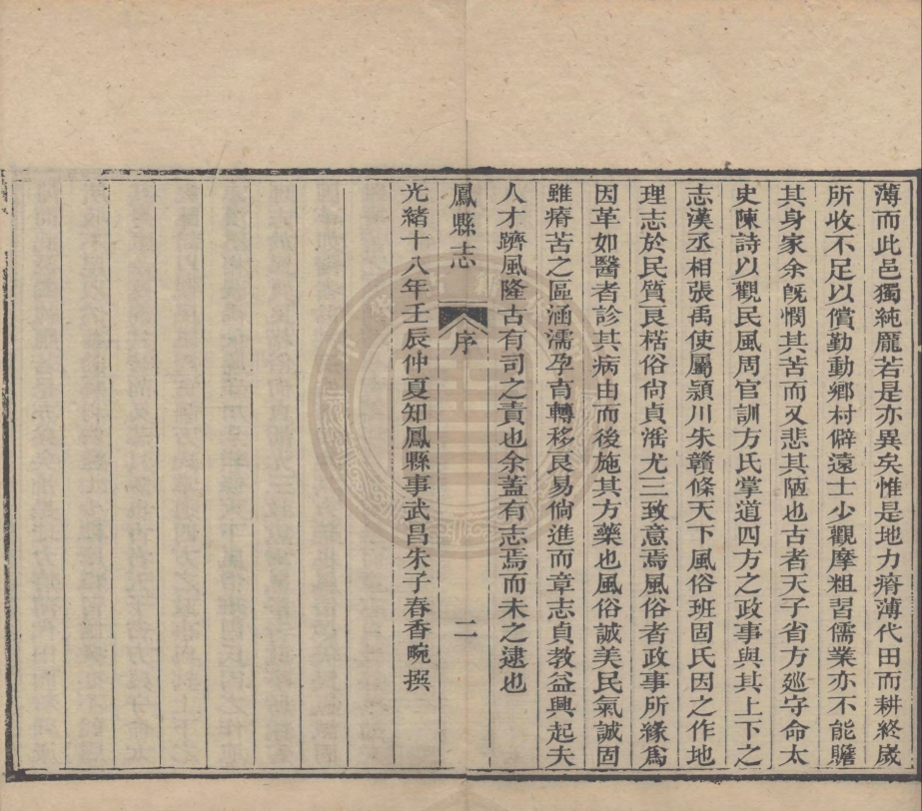 薄而此邑獨純龐若是亦異矣惟是地力瘠薄代田而耕終歲
所收不足以償勤動鄉村僻遠士少觀摩粗習儒業亦不能贍
其身家余旣憫其苦而又悲其陋也古者天子省方廵守命太
史陳詩以觀民風周官訓方氏掌道四方之政事與其上下之
志漢丞相張禹使屬潁川朱贛條天下風俗班固氏因之作地
理志於民質良楛俗尙貞滛尤三致意焉風俗者政事所緣爲
因革如醫者診其病由而後施其方藥也風俗誠美民氣誠固
雖瘠苦之區涵濡孕育轉移良易倘進而章志貞教益興起夫
人才躋風隆古有司之責也余蓋有志焉而未之逮也
鳳縣志 序 二
光緒十八年壬辰仲夏知鳳縣事武昌朱子春香畹撰